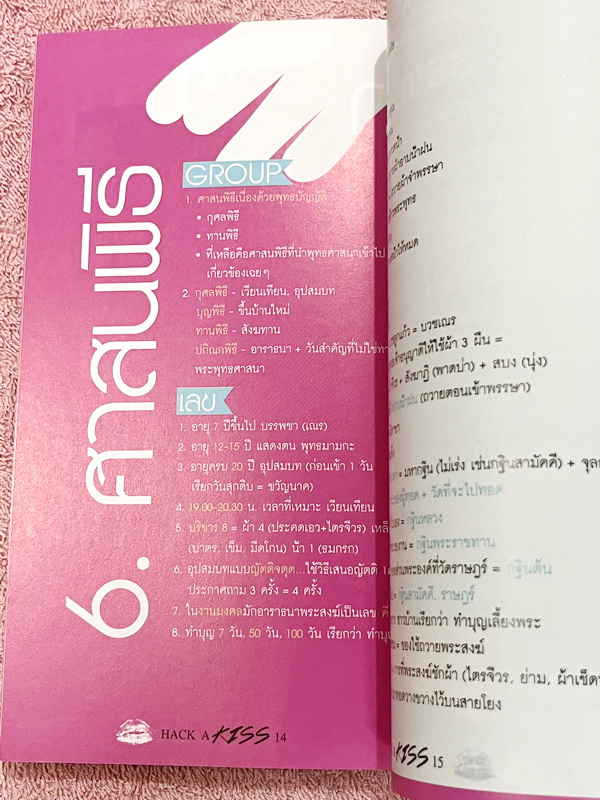 6. ศาสนพิธี
GROUP
1. ศาสนพิธีเนื่องด้วยพุทธบัญญัติ
• กุศลพิธี
• ทานพิธี
• ที่เหลือคือศาสนพิธีที่นำพุทธศาสนาเข้าไป
เกี่ยวข้องเฉยๆ
2. กุศลพิธี - เวียนเทียน, อุปสมบท
บุญพิธี - ขึ้นบ้านใหม่
ทานพิธี - สังฆทาน
ปกิณกพิธี - อาราธนา + วันสำคัญที่ไม่ใช่ทาง
พระพุทธศาสนา
เลข
1. อายุ 7 ปีขึ้นไป บรรพชา (เณร)
2. อายุ 12-15 ปี แสดงตน พุทธมามกะ
3. อายุครบ 20 ปี อุปสมบท (ก่อนเข้า 1 วัน
เรียกวันสุกดิบ = ขวัญนาค)
4. 19.00-20.30 น. เวลาที่เหมาะ เวียนเทียน
5. บริขาร 8 = ผ้า 4 (ประคดเอว+ไตรจีวร) เหล็
(บาตร, เข็ม, มีดโกน) น้ำ 1 (ธมกรก)
6. อุปสมบทแบบญัตติจตุต...ใช้วิธีเสนอญัตติ 1
ประกาศถาม 3 ครั้ง = 4 ครั้ง
7. ในงานมงคลมักอาราธนาพระสงฆ์เป็นเลข คี่
8. ทำบุญ 7 วัน, 50 วัน, 100 วัน เรียกว่า ทำบุญ
HACK A KISS 14
อาบน้ำฝน
ผ้าจำพรรษา
พระพุทธ
ให้หมด
ลูกแก้ว = บวชเณร
อนุญาติให้ใช้ผ้า 3 ผืน =
+ สังฆาฏิ (พาดบ่า) + สบง (นุ่ง)
อาบน้ำฝน (ถวายตอนเข้าพรรษา)
= มหากฐิน (ไม่เร่ง เช่นกฐินสามัคคี) + จุลก
ของผู้ทอด + วัดที่จะไปทอด
= กฐินหลวง
= กฐินพระราชทาน
ส่วนพระองค์ที่วัดราษฎร์ = กฐินต้น
= กฐินสามัคคี, ราษฎร์
ชาวบ้านเรียกว่า ทำบุญเลี้ยงพระ
= ของใช้ถวายพระสงฆ์
= การที่พระสงฆ์ชักผ้า (ไตรจีวร, ย่าม, ผ้าเช็ด
ทอดวางขวางไว้บนสายโยง
KISS 15